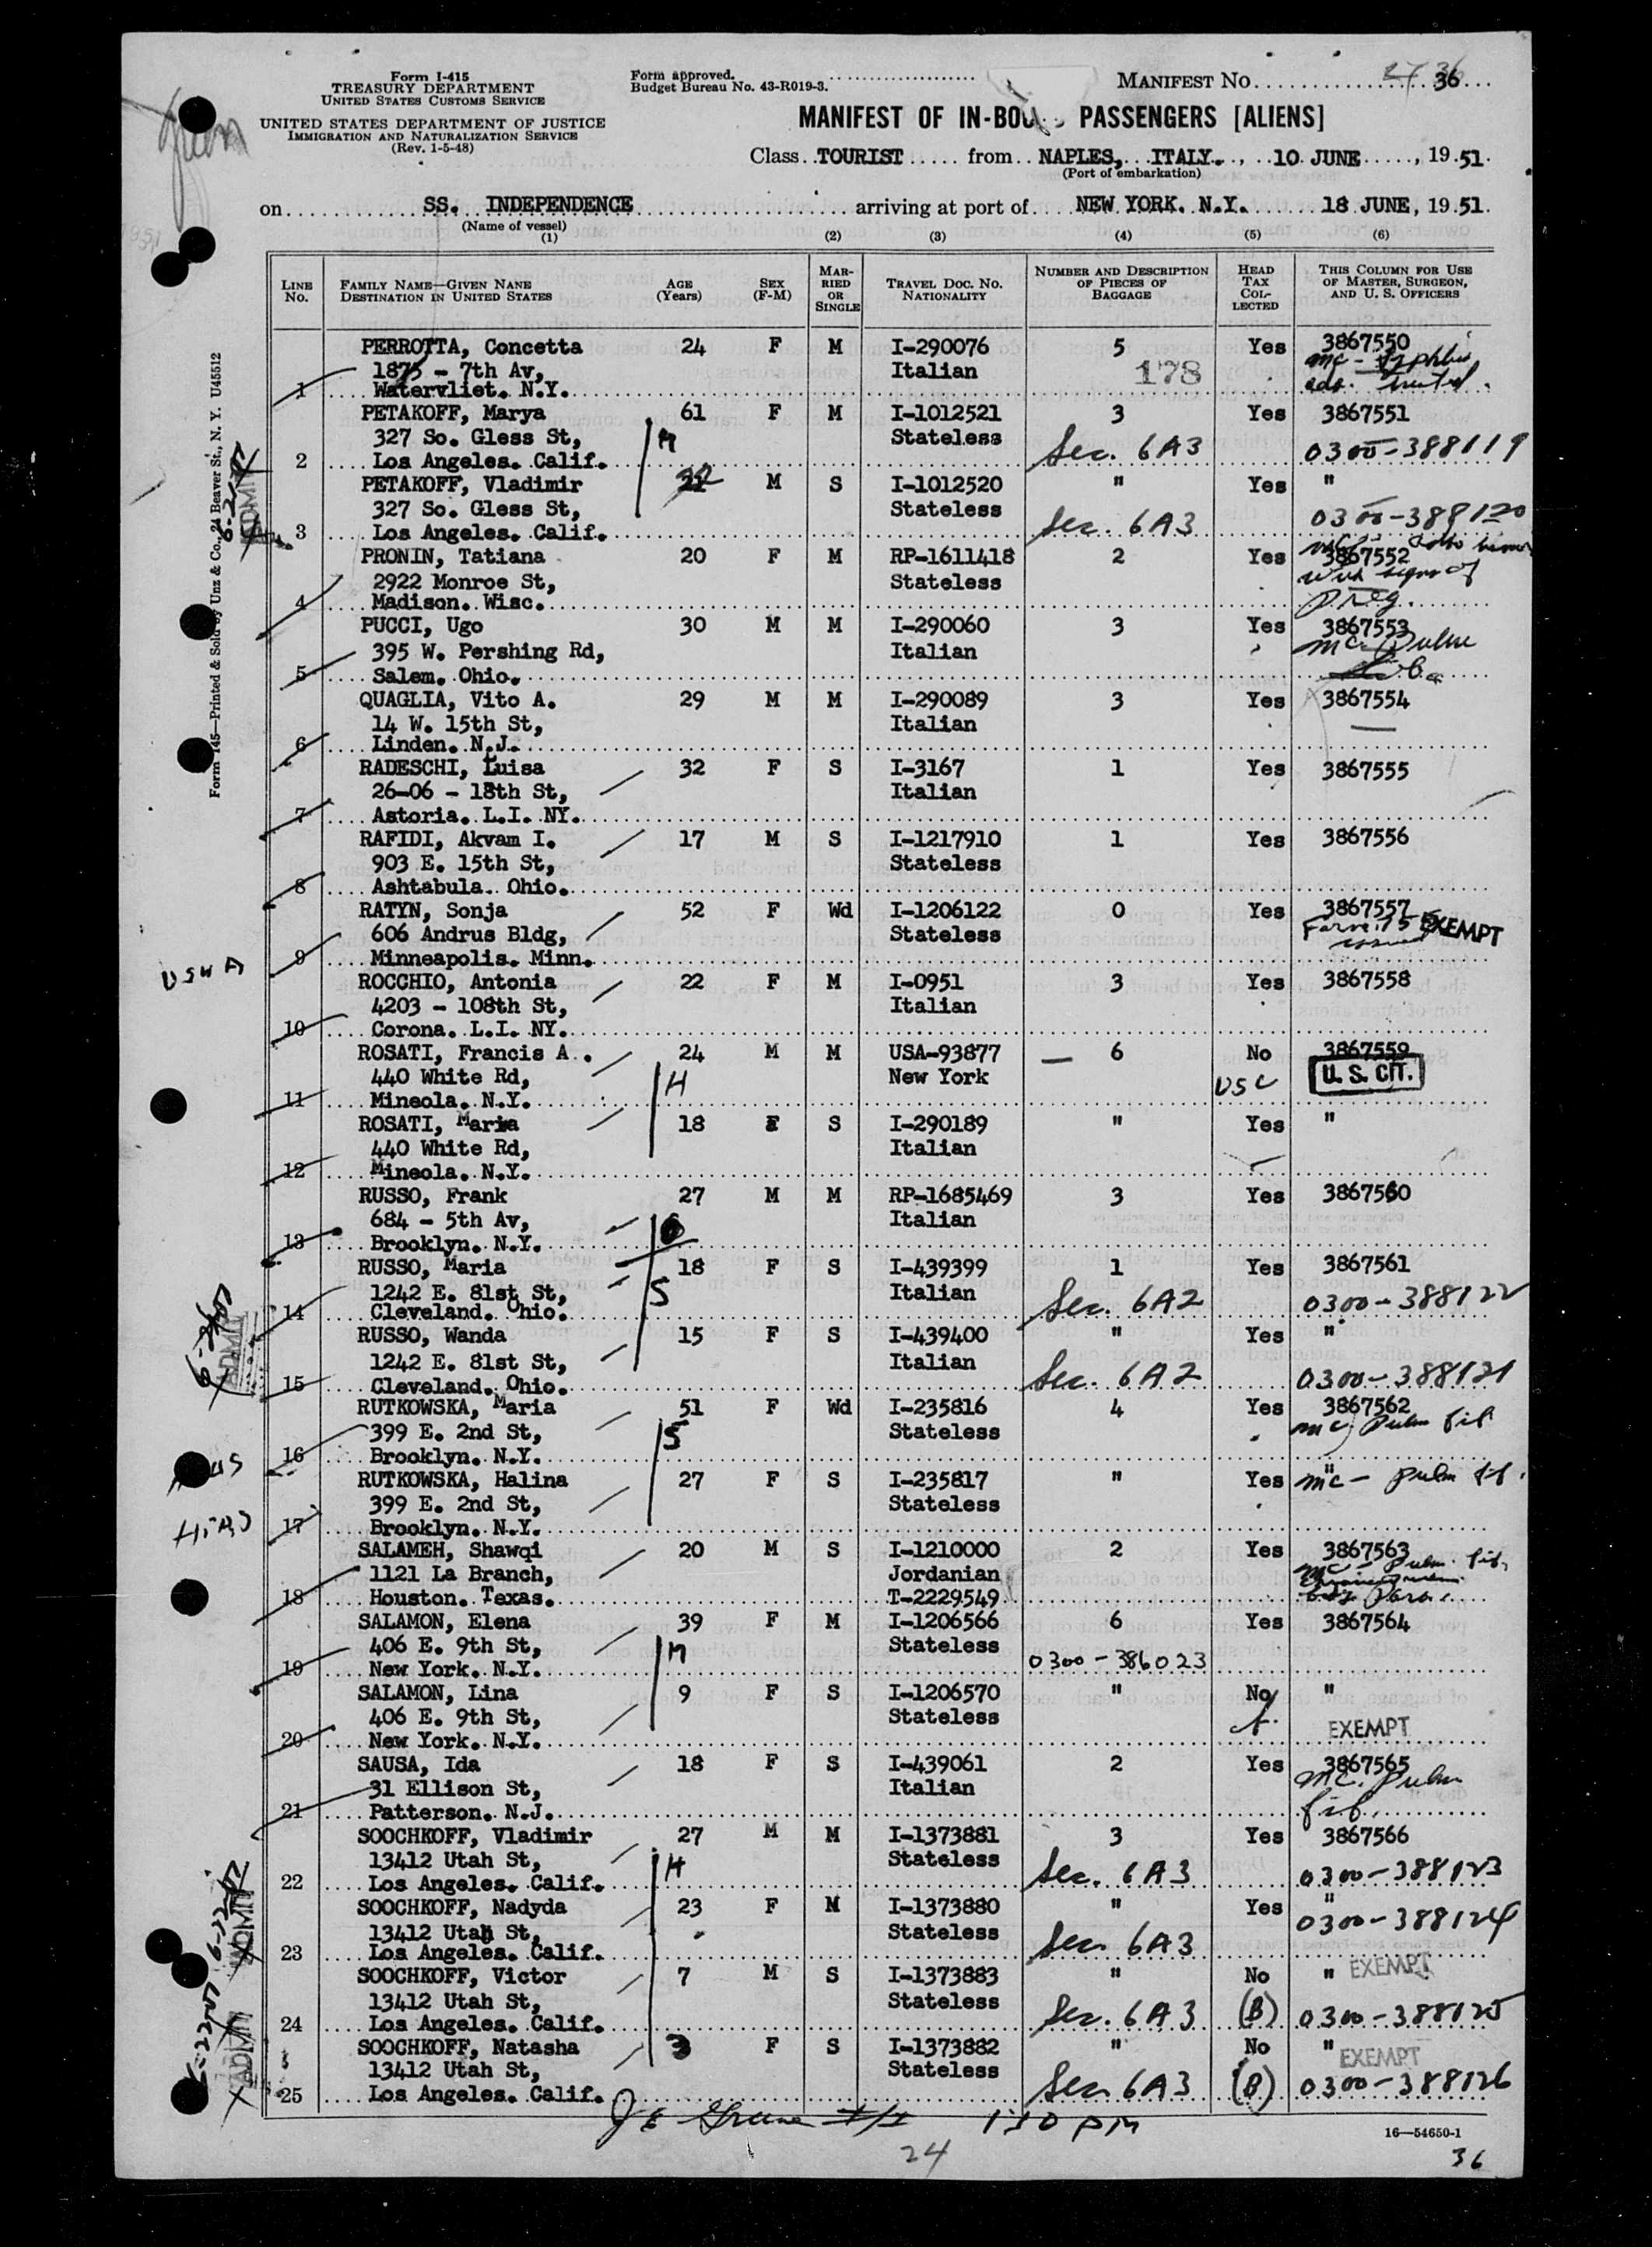 Form I-415
TREASURY DEPARTMENT
UNITED STATES CUSTOMS SERVICE
UNITED STATES DEPARTMENT OF JUSTICE
IMMIGRATION AND NATURALIZATION SERVICE
(Rev. 1-5-48)
Form approved.
Budget Bureau No. 43-R019-3.
MANIFEST NO. 36
MANIFEST OF IN-BOU PASSENGERS [ALIENS]
Class TOURIST from NAPLES, ITALY. , 10 JUNE , 19 51.
(Port of embarkation)
on SS. INDEPENDENCE arriving at port of NEW YORK. N.Y. 18 JUNE, 19 51.
(Name of vessel)
(1) (2) (3) (4) (5) (6)
LINE NO. FAMILY NAME—GIVEN NANE DESTINATION IN UNITED STATES AGE (Years) SEX (F-M) MAR-RIED OR SINGLE TRAVEL DOC. NO. NATIONALITY NUMBER AND DESCRIPTION OF PIECES OF BAGGAGE HEAD TAX COL-LECTED THIS COLUMN FOR USE OF MASTER, SURGEON, AND U. S. OFFICERS
PERROTTA, Concetta 24 F M I-290076 5 Yes 3867550
1875 - 7th Av, Italian 178 mc -
1 Watervliet. N.Y.
PETAKOFF, Marya 61 F M I-1012521 3 Yes 3867551
327 So. Gless St, M Stateless Sec. 6A3 0300-388119
2 Los Angeles. Calif.
PETAKOFF, Vladimir 22 M S I-1012520 " Yes "
327 So. Gless St, Stateless Sec. 6A3 0300-388120
3 Los Angeles. Calif.
PRONIN, Tatiana 20 F M RP-1611418 2 Yes 3867552
2922 Monroe St, Stateless
4 Madison. Wisc. preg.
PUCCI, Ugo 30 M M I-290060 3 Yes 3867553
395 W. Pershing Rd, Italian mc Pulm
5 Salem. Ohio.
QUAGLIA, Vito A. 29 M M I-290089 3 Yes 3867554
14 W. 15th St, Italian
6 Linden. N.J.
RADESCHI, Luisa 32 F S I-3167 1 Yes 3867555
26-06 - 18th St, Italian
7 Astoria. L.I. NY.
RAFIDI, Akvam I. 17 M S I-1217910 1 Yes 3867556
903 E. 15th St, Stateless
8 Ashtabula. Ohio.
RATYN, Sonja 52 F Wd I-1206122 0 Yes 3867557
606 Andrus Bldg, Stateless issued EXEMPT
9 Minneapolis. Minn.
ROCCHIO, Antonia 22 F M I-0951 3 Yes 3867558
4203 - 108th St, Italian
10 Corona. L.I. NY.
ROSATI, Francis A. 24 M M USA-93877 — 6 No 3867559
440 White Rd, H New York USC U. S. CIT.
11 Mineola. N.Y.
ROSATI, Maria 18 F S I-290189 " Yes "
440 White Rd, Italian
12 Mineola. N.Y.
RUSSO, Frank 27 M M RP-1685469 3 Yes 3867560
684 - 5th Av, Italian
13 Brooklyn. N.Y.
RUSSO, Maria 18 F S I-439399 1 Yes 3867561
1242 E. 81st St, S Italian Sec. 6A2 0300-388122
14 Cleveland. Ohio.
RUSSO, Wanda 15 F S I-439400 " Yes "
1242 E. 81st St, Italian Sec. 6A2 0300-388121
15 Cleveland. Ohio.
RUTKOWSKA, Maria 51 F Wd I-235816 4 Yes 3867562
399 E. 2nd St, S Stateless mc Pulm fib
16 Brooklyn. N.Y.
RUTKOWSKA, Halina 27 F S I-235817 " Yes " mc - pulm fib.
399 E. 2nd St, Stateless
17 Brooklyn. N.Y.
SALAMEH, Shawqi 20 M S I-1210000 2 Yes 3867563
1121 La Branch, Jordanian mc - Pulm. fib,
18 Houston. Texas. T-2229549
SALAMON, Elena 39 F M I-1206566 6 Yes 3867564
406 E. 9th St, M Stateless 0300-386023
19 New York. N.Y.
SALAMON, Lina 9 F S I-1206570 " No "
406 E. 9th St, Stateless EXEMPT
20 New York. N.Y.
SAUSA, Ida 18 F S I-439061 2 Yes 3867565
31 Ellison St, Italian mc. Pulm
21 Patterson. N.J. fib.
SOOCHKOFF, Vladimir 27 M M I-1373881 3 Yes 3867566
13412 Utah St, H Stateless Sec. 6A3 0300-388123
22 Los Angeles. Calif.
SOOCHKOFF, Nadyda 23 F M I-1373880 " Yes "
13412 Utah St, Stateless Sec 6A3 0300-388124
23 Los Angeles. Calif.
SOOCHKOFF, Victor 7 M S I-1373883 " No " EXEMPT
13412 Utah St, Stateless Sec. 6A3 (B) 0300-388125
24 Los Angeles. Calif.
SOOCHKOFF, Natasha 3 F S I-1373882 " No " EXEMPT
13412 Utah St, Stateless Sec 6A3 (B) 0300-388126
25 Los Angeles. Calif.
1:30 PM
24
16—54650-1
36
Form 145—Printed & Sold by Unz & Co., 24 Beaver St., N. Y. U45512
ADMIT
USWA
ADMIT
ADMIT
ADMIT